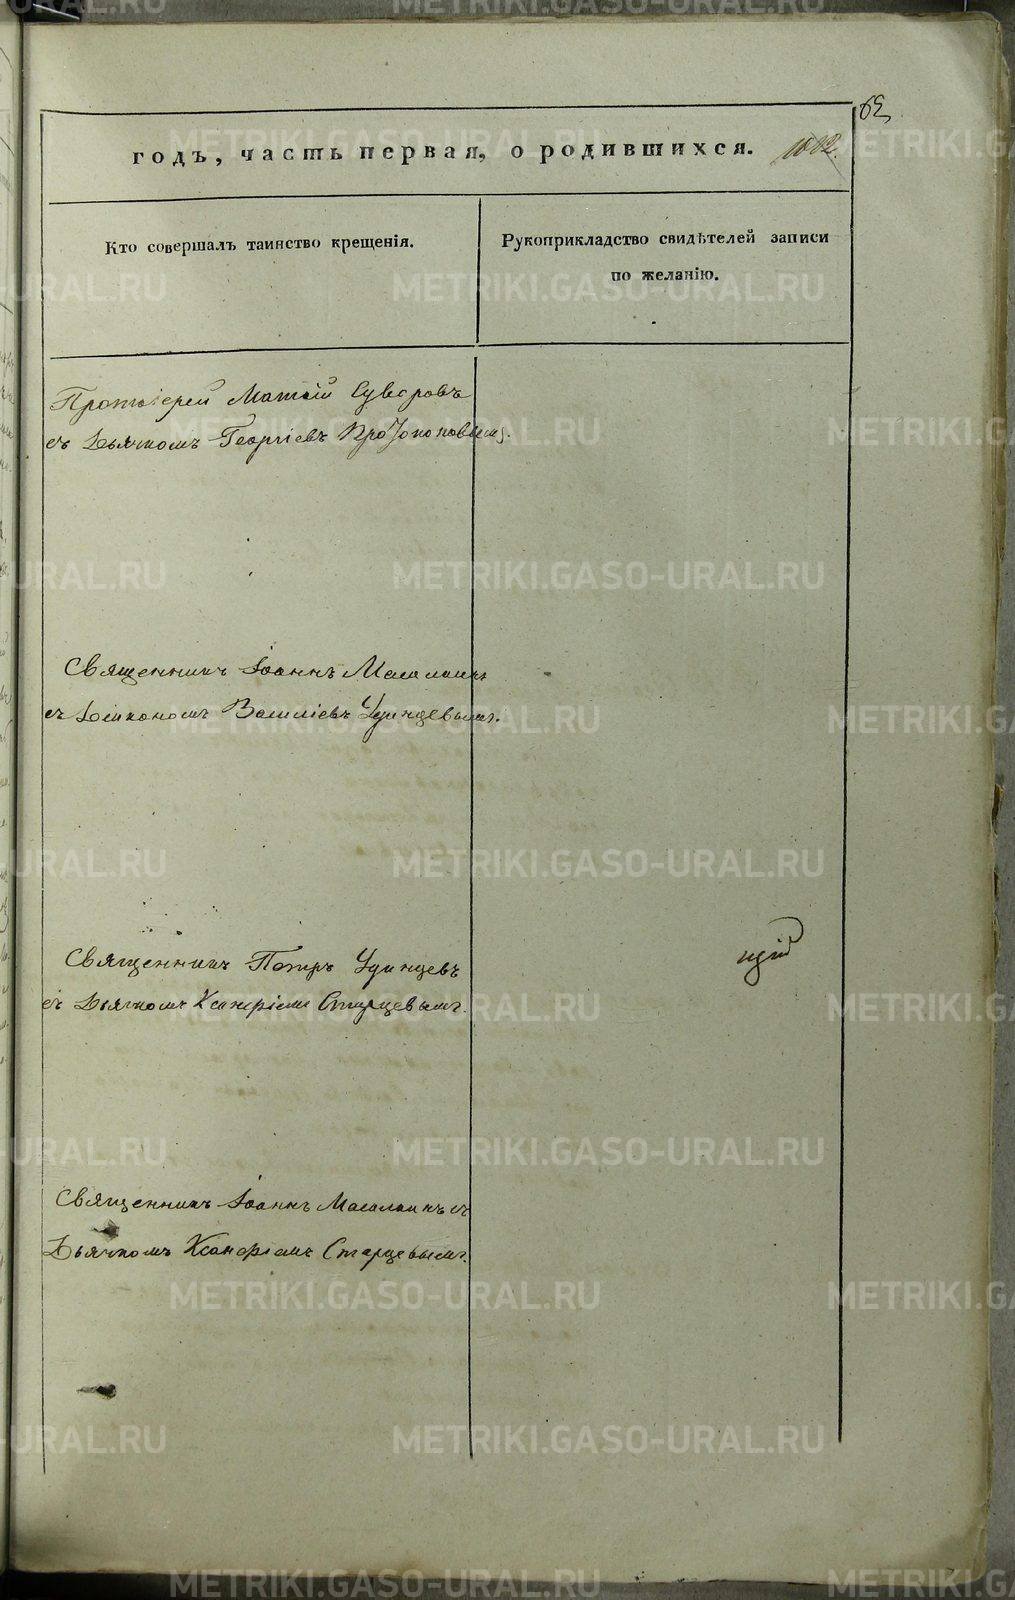 годъ, часть первая, о родившихся.
Кто совершалъ таинство крещенія.
Рукоприкладство свидѣтелей записи
по желанію.
Протоіерей Матѳій Суворовъ
съ Дьячкомъ Георгіевъ
Священникъ Іоаннъ
съ Діякономъ Василіевъ Удинцевымъ.
Священникъ Петръ Удинцевъ
съ Дьячкомъ Старцевымъ.
Священникъ Іоаннъ съ
Дьячкомъ Старцевымъ.
METRIKI.GASO-URAL.RU